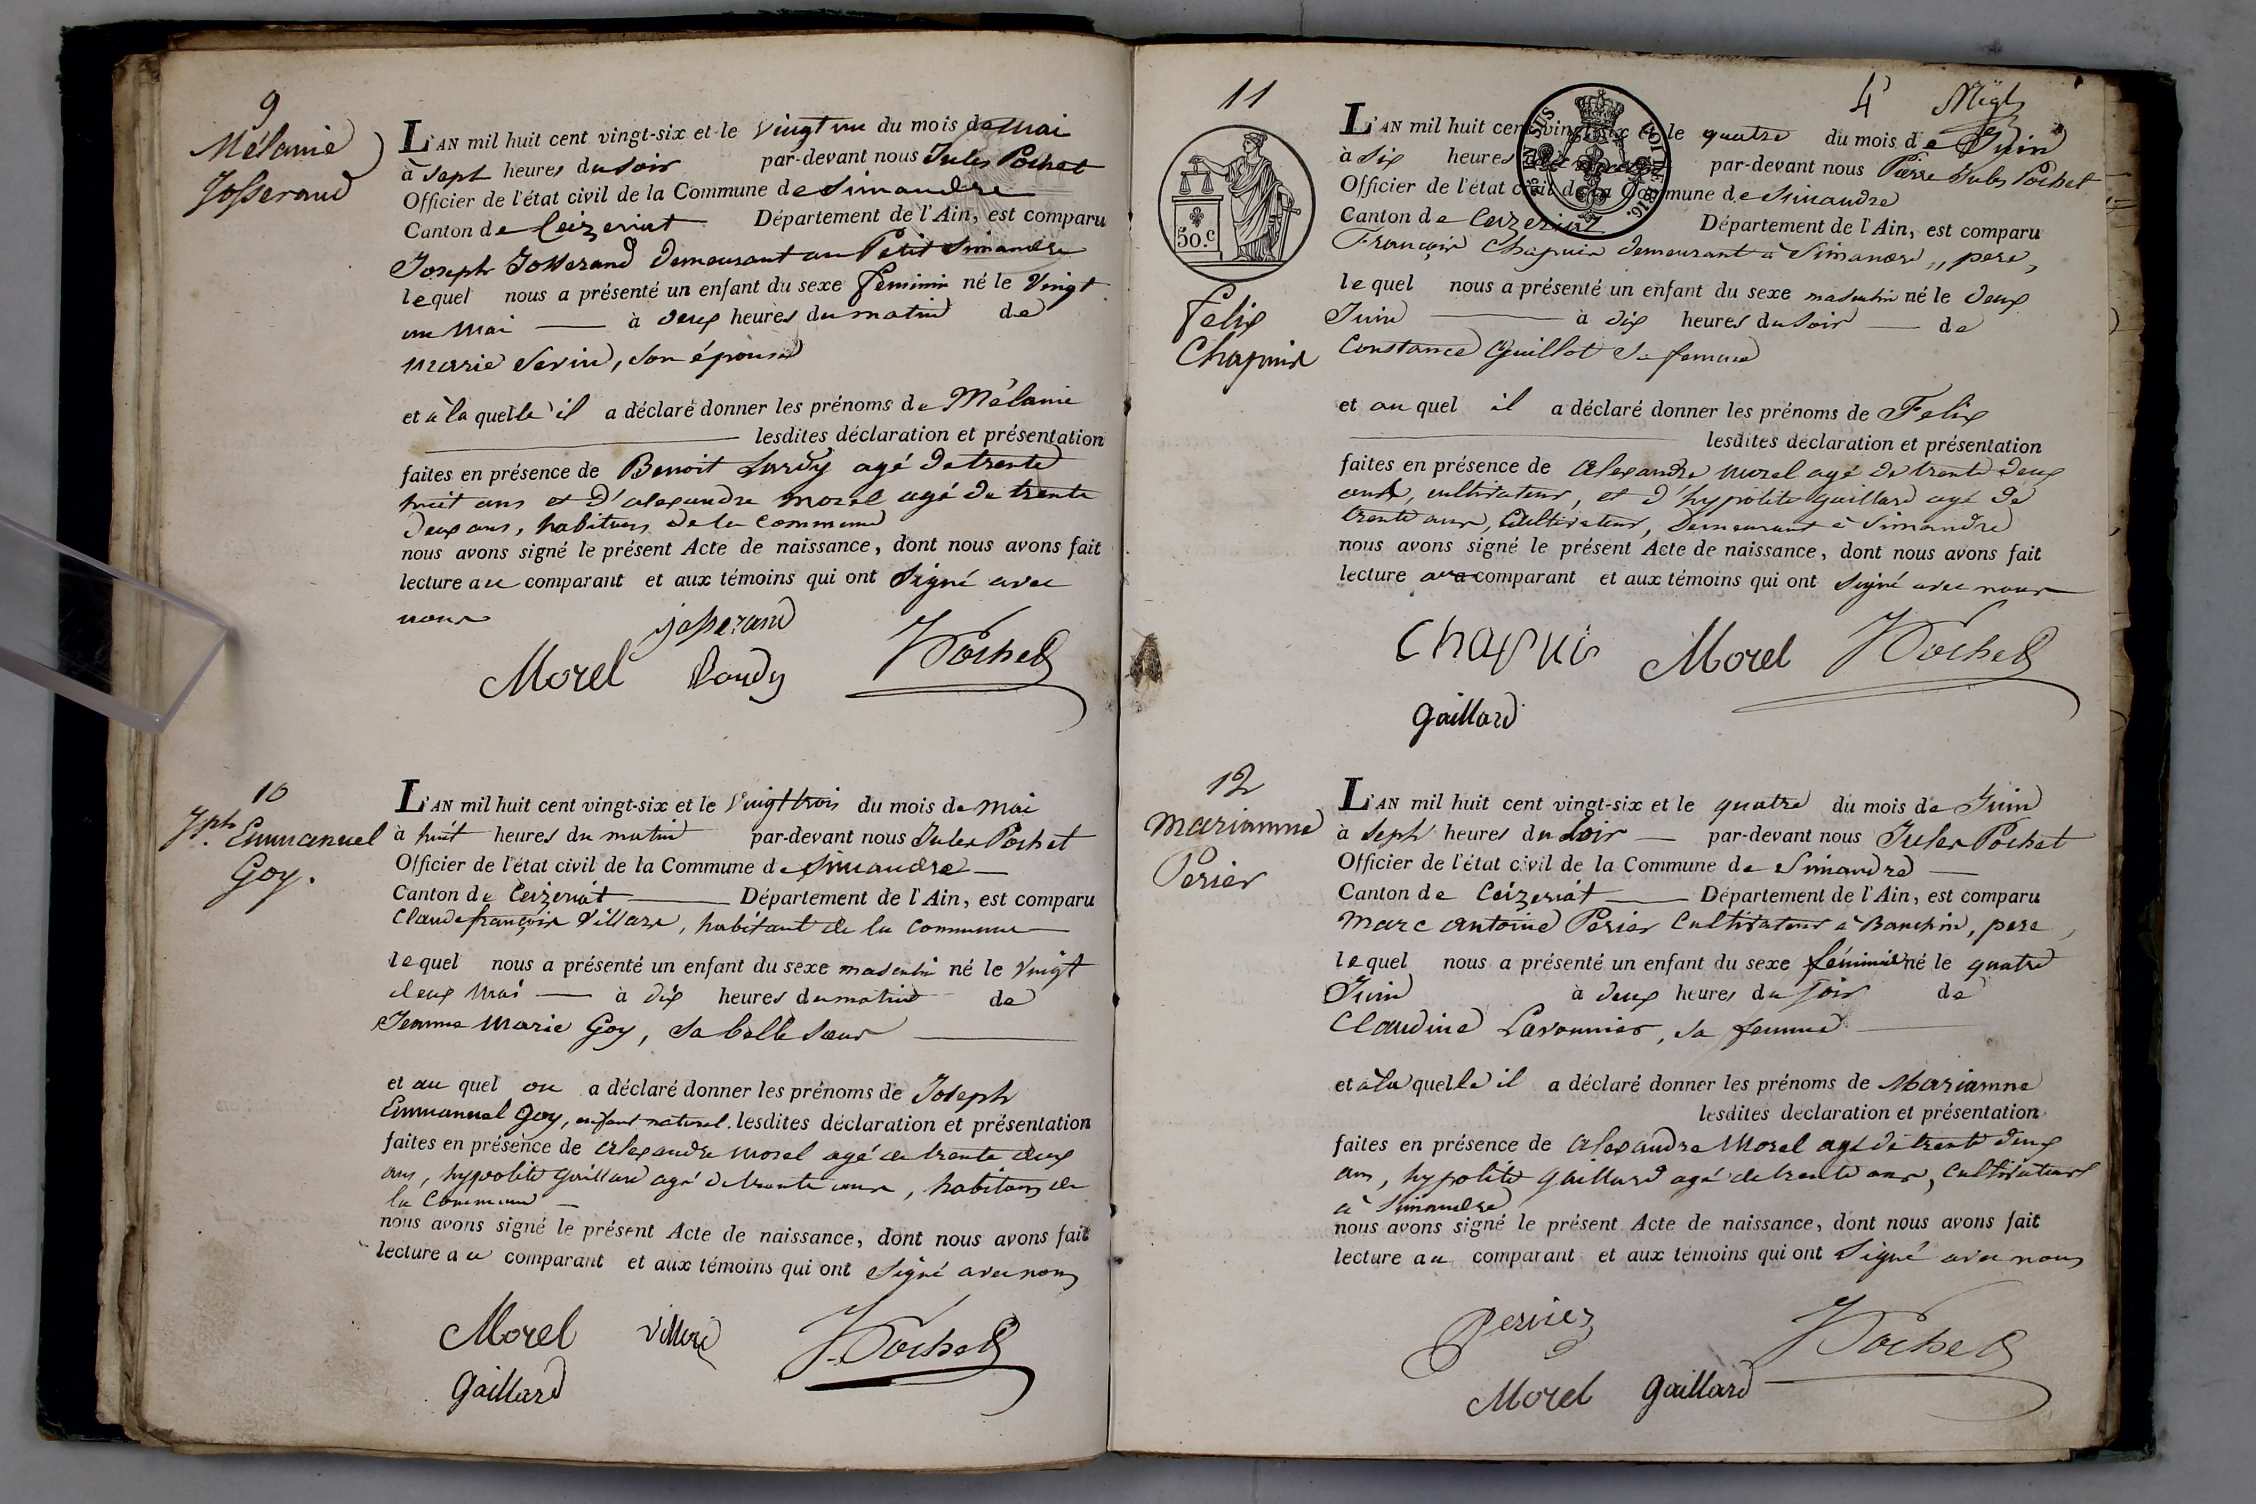 9
Mélanie
Josserand
L'AN mil huit cent vingt-six et le vingt un du mois de mai
à sept heures du soir par-devant nous Jules Pochet
Officier de l'état civil de la Commune de Simandre
Canton de Ceizeriat Département de l'Ain, est comparu
Joseph Josserand demeurant au Petit Simandre
lequel nous a présenté un enfant du sexe feminin né le vingt
un mai à deux heures du matin de
marie Sevin, son épouse
et à la quelle il a déclaré donner les prénoms de Mélanie
lesdites déclaration et présentation
faites en présence de Benoit agé de trente
huit ans et d'alexandre morel agé de trente
deux ans, habitans de la commune
nous avons signé le présent Acte de naissance, dont nous avons fait
lecture au comparant et aux témoins qui ont signé avec
nous
josserand
Morel JPochet
10
Jph. Emmanuel
Goy.
L'AN mil huit cent vingt-six et le vingt trois du mois de mai
à huit heures du matin par-devant nous Jules Pochet
Officier de l'état civil de la Commune de Simandre
Canton de Ceizeriat Département de l'Ain, est comparu
Claude françois Villard, habitant de la commune
lequel nous a présenté un enfant du sexe masculin né le vingt
deux mai à dix heures du matin de
Jeanne Marie Goy, sa belle sœur
et au quel on a déclaré donner les prénoms de Joseph
Emmanuel Goy, enfant naturel. lesdites déclaration et présentation
faites en présence de alexandre morel agé de trente deux
ans, hypolite gaillard agé de trente ans, habitans de
la commune
nous avons signé le présent Acte de naissance, dont nous avons fait
lecture au comparant et aux témoins qui ont signé avec nous
Morel villard JPochet
Gaillard
11
4
50.C
Felix
Chapuis
L'AN mil huit cent vingt-six et le quatre du mois de Juin
à six heures par-devant nous Pierre Jules Pochet
Officier de l'état civil de la Commune de Simandre
Canton de Ceizeriat Département de l'Ain, est comparu
François Chapuis demeurant à Simandre, pere,
lequel nous a présenté un enfant du sexe masculin né le deux
Juin à dix heures du soir de
Constance Guillot sa femme
et au quel il a déclaré donner les prénoms de Felix
lesdites déclaration et présentation
faites en présence de alexandre morel agé de trente deux
ans, cultivateur, et d'hypolite gaillard agé de
trente ans, cultivateur, demeurant à Simandre
nous avons signé le présent Acte de naissance, dont nous avons fait
lecture au comparant et aux témoins qui ont signé avec nous
Chapuis Morel JPochet
gaillard
12
Mariamne
Perier
L'AN mil huit cent vingt-six et le quatre du mois de Juin
à sept heures du soir par-devant nous Jules Pochet
Officier de l'état civil de la Commune de Simandre
Canton de Ceizeriat Département de l'Ain, est comparu
Marc antoine Perier cultivateur à Banchin, pere,
lequel nous a présenté un enfant du sexe féminin né le quatre
Juin à deux heures du soir de
Claudine Lavonnier, sa femme
et à la quelle il a déclaré donner les prénoms de Mariamne
lesdites déclaration et présentation
faites en présence de alexandre Morel agé de trente deux
ans, hypolite gaillard agé de trente ans, cultivateurs
à Simandre
nous avons signé le présent Acte de naissance, dont nous avons fait
lecture au comparant et aux témoins qui ont signé avec nous
Perier JPochet
Morel gaillard